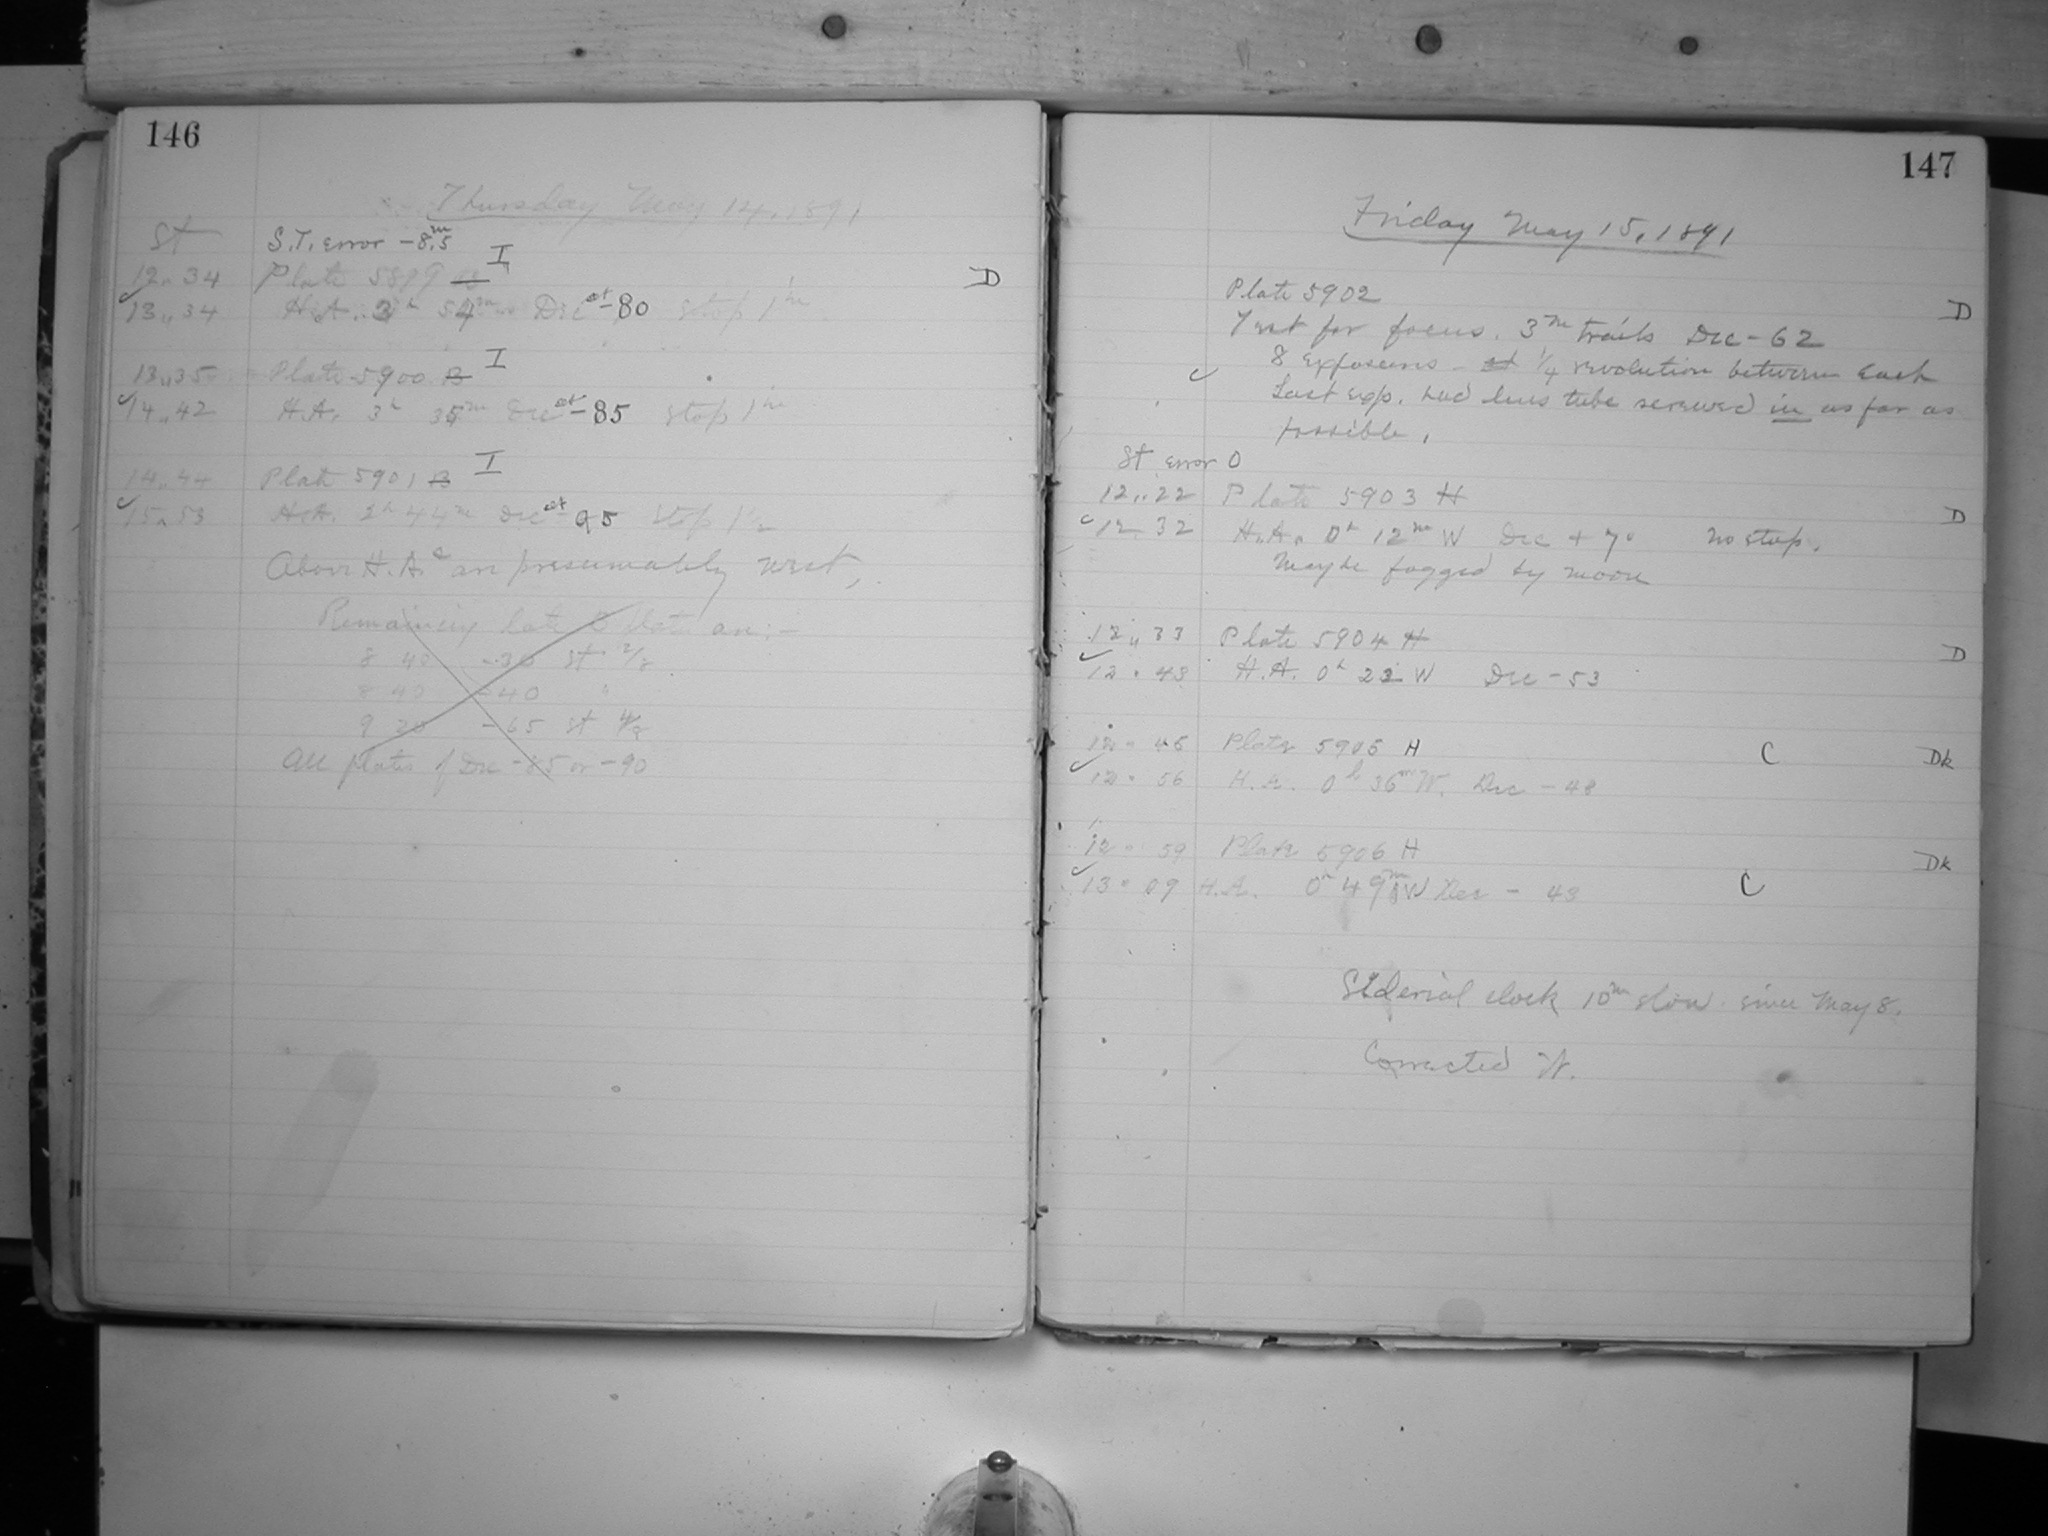 146
Thursday May 14, 1891
St S.T. error -8.5m
12 34 Plate 5899 B I D
13 34 H.A. 3h 54m Dec -80 stop 1in
13 35 Plate 5900 B I
14 42 H.A. 3h 35m Dec -85 stop 1in
14 44 Plate 5901 B I
15 53 H.A. 2h 44m Dec -95 stop
Above H.A.s are presumably west,
Remaining late B Plates are:-
8 40 -30 st
8 40 -40 "
9 20 -65 st
All plates of Dec -85 or -90
147
Friday May 15, 1891
Plate 5902 D
Test for focus. 3m trails Dec -62
8 exposures - at 1/4 revolution between each
Last exp. had lens tube screwed in as far as
possible.
St error 0
12 22 Plate 5903 H
12 32 H.A. 0h 12m W Dec +70 no stop. D
Maybe fogged by moon
12 33 Plate 5904 H
12 43 H.A. 0h 22 W Dec -53 D
12 46 Plate 5905 H C Dk
12 56 H.A. 0h 36m W. Dec -48
12 59 Plate 5906 H Dk
13 09 H.A. 0h 49m W Dec - 43 C
Siderial clock 10m slow since May 8.
Corrected W.